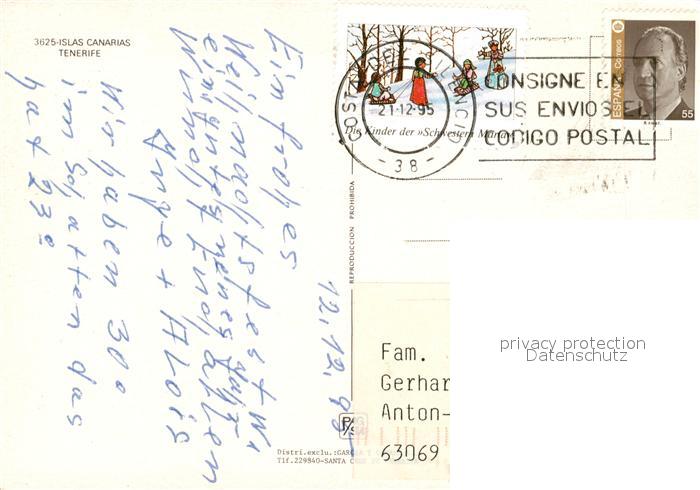 3625-ISLAS CANARIAS
TENERIFE
12.12.95
Ein frohes
Weihnachtsfest u.
ein gutes neues Jahr
Wünscht Euch allen
Inge + Alois
Wir haben 30°
im Schatten das
hat 23°
REPRODUCCION PROHIBIDA
Distri.exclu.:GARCIA Y
Tlf.229840-SANTA CRUZ
21-12-95
-38-
Die Kinder der »Schwestern Maria«
CONSIGNE EN
SUS ENVIOS EL
CODIGO POSTAL
ESPAÑA Correos
55
Fam.
Gerhar
Anton-
63069
privacy protection
Datenschutz